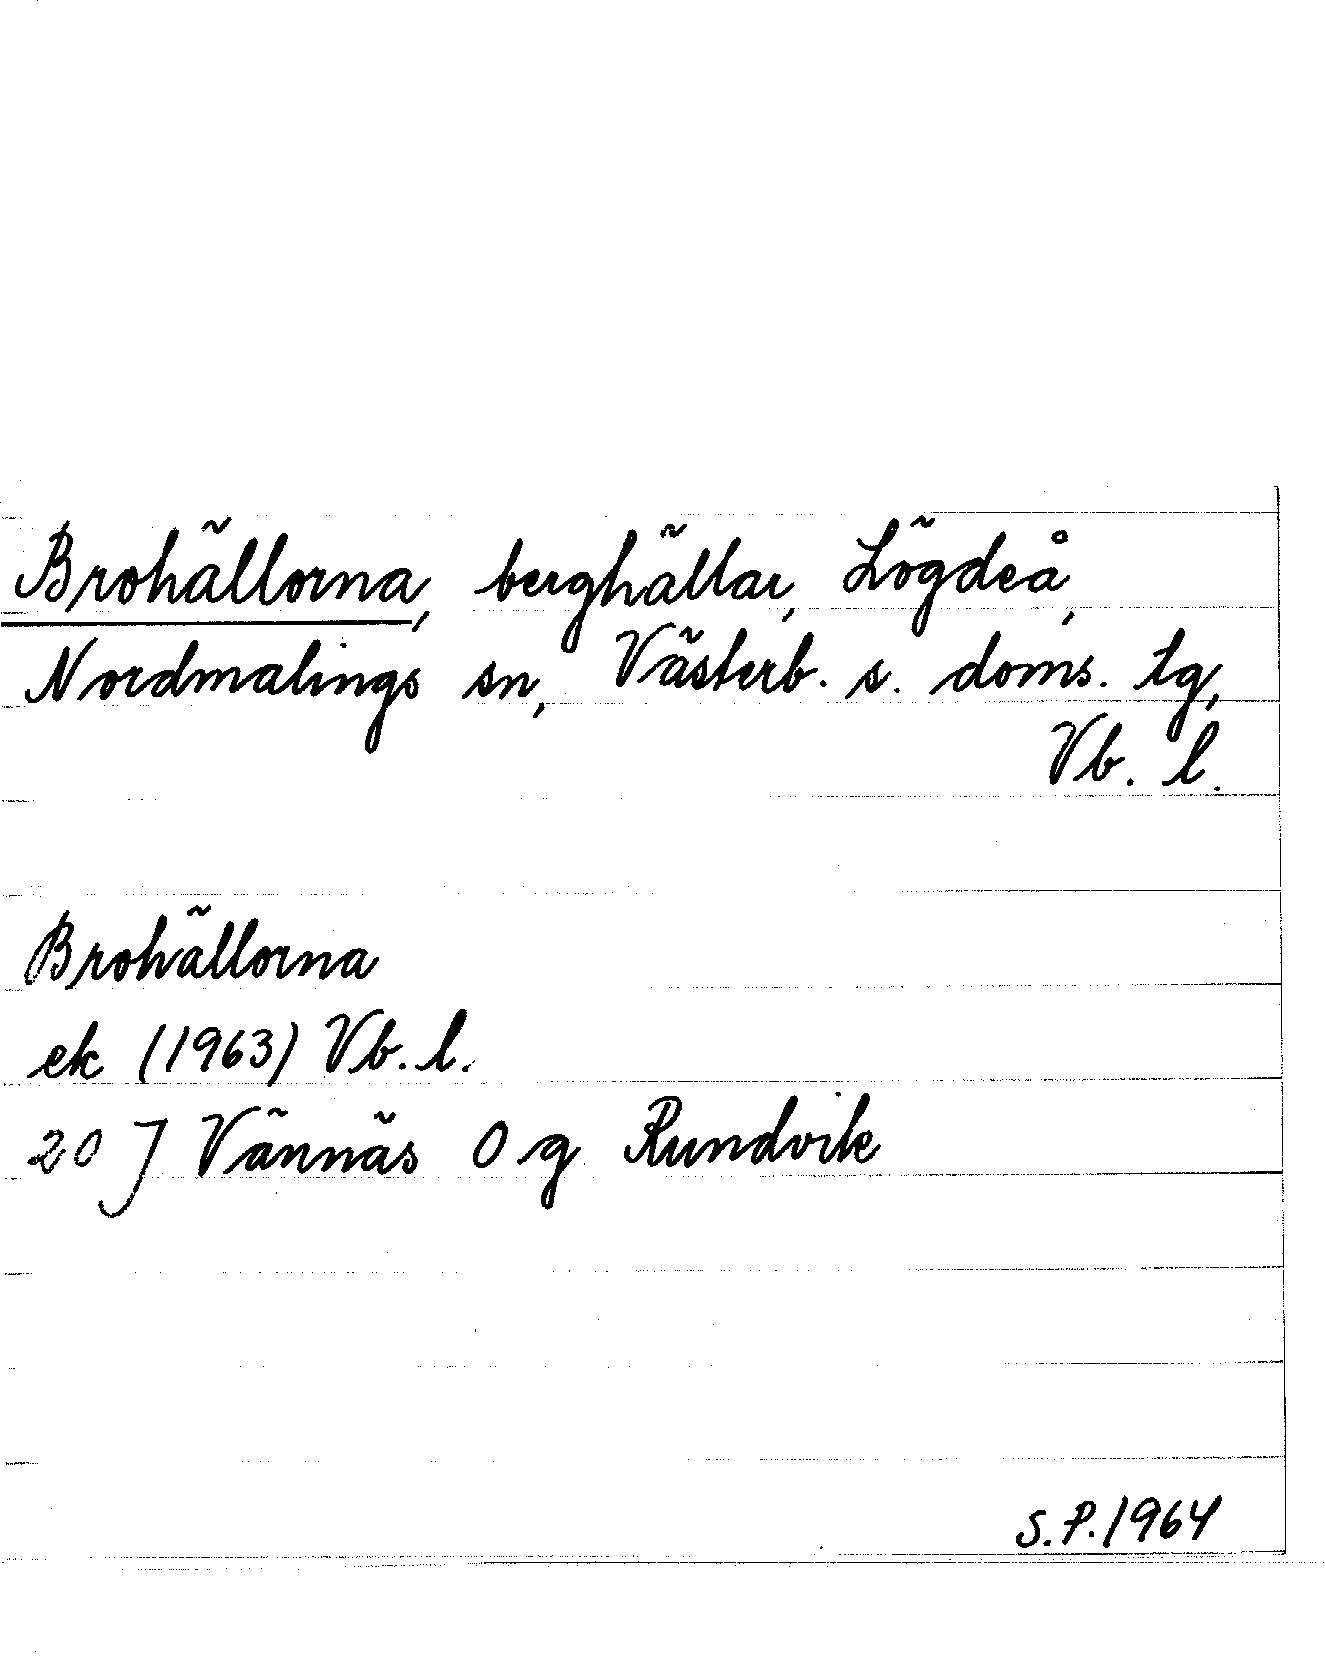 Brohällorna, berghällar, Lögdeå,
Nordmalings sn, Västerb. s. doms. tg,
Vb. l.
Brohällorna
ek (1963) Vb. l.
20 J Vännäs 0 g Rundvik
S.P. 1964